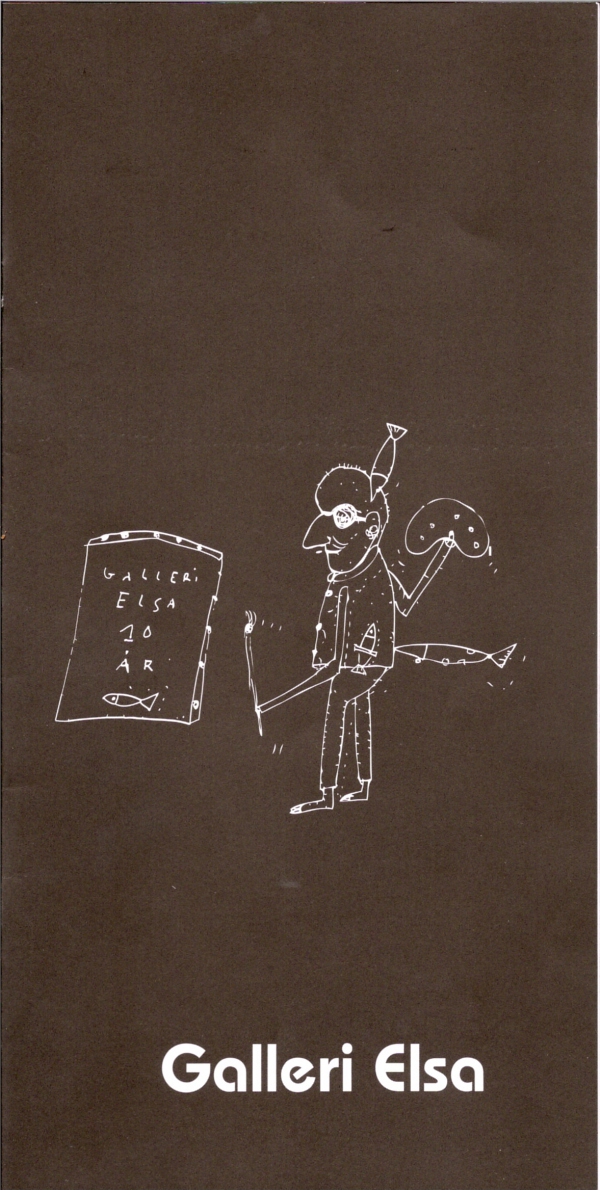 GALLERi
ELSA
10
ÅR
Galleri Elsa